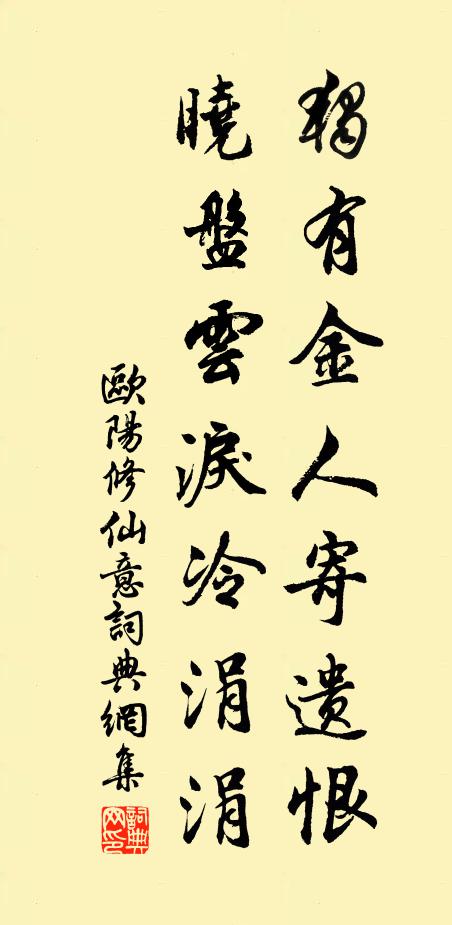 獨有金人寄遺恨
曉盤雲淚冷涓涓
歐陽修仙意詞典網集
詞典
网印